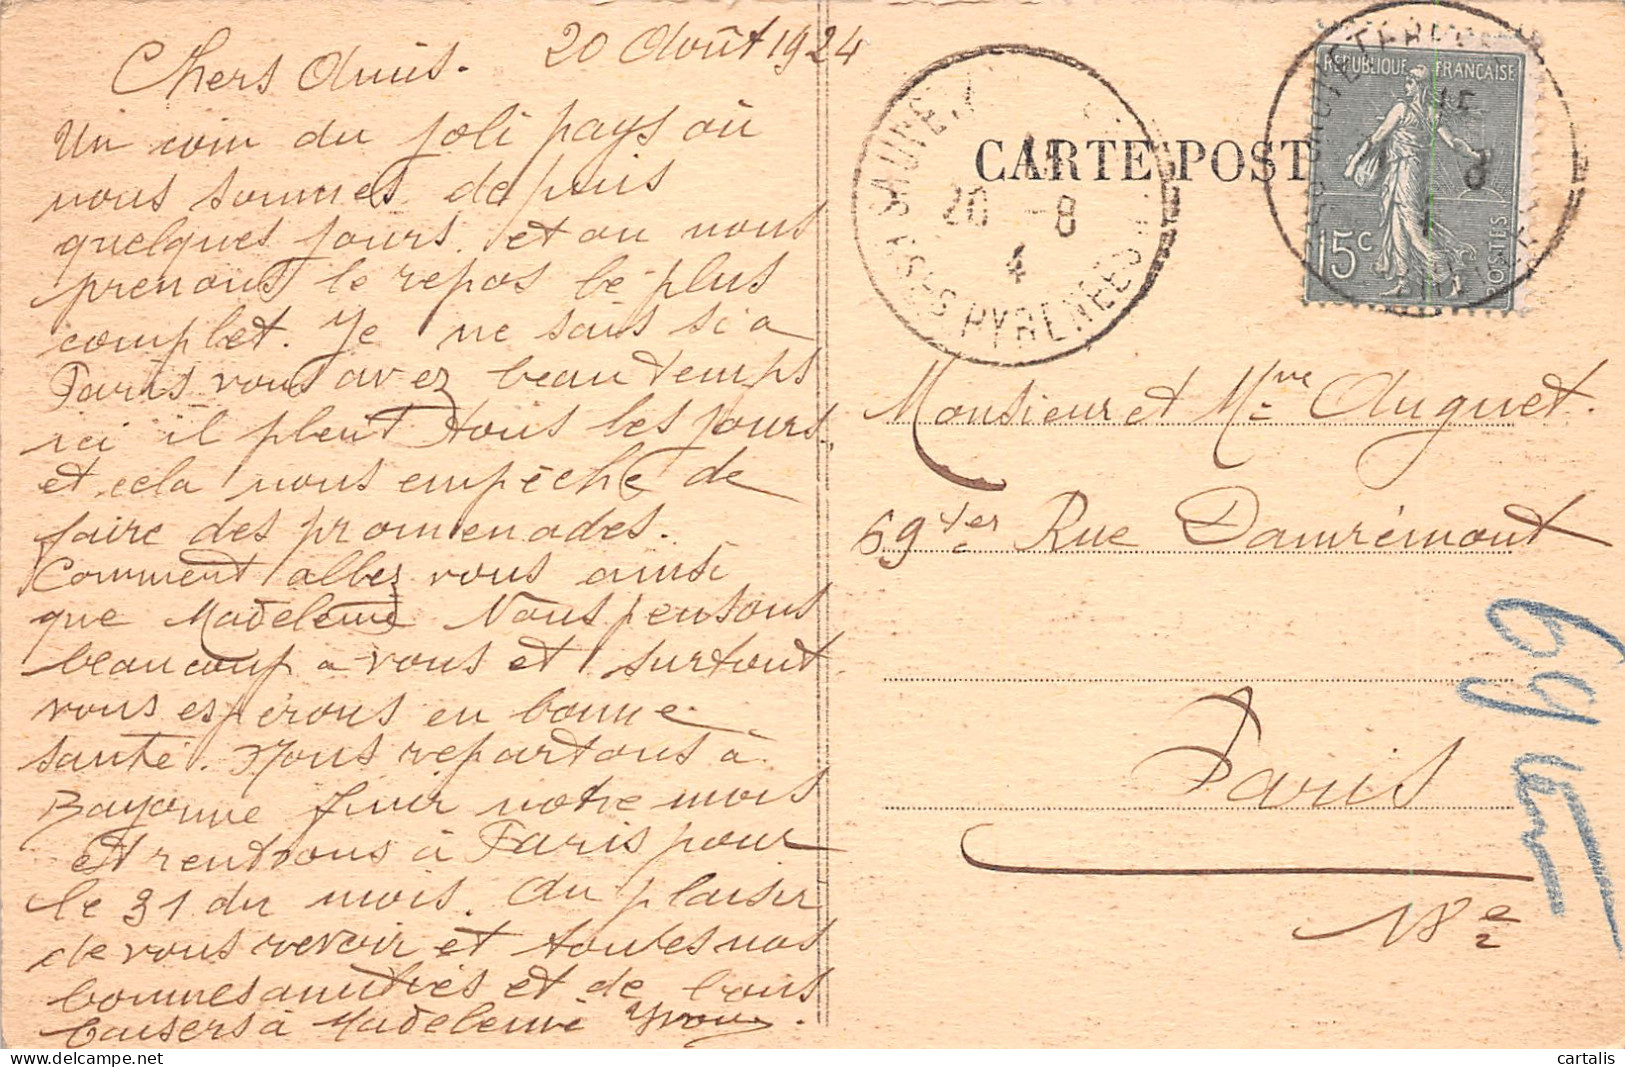 20 Août 1924
Chers Amis.
Un coin du joli pays où
nous sommes depuis
quelques jours. et ou nous
prenons le repos le plus
complet. Je ne sais si a
Paris vous avez beau temps
ici il pleut tous les jours.
et cela nous empêche de
faire des promenades.
Comment allez vous ainsi
que Madeleine Nous pensons
beaucoup a vous et surtout
vous espérons en bonne
santé. Nous repartons à
Bayonne finir notre mois
et rentrons à Paris pour
le 31 du mois. Au plaisir
de vous revoir et toutes nos
bonnes amitiés et de bons
baisers à Madeleine Yvonne.
CARTE POST
SAUVE
20 -8
4
BSES PYRENEES
REPUBLIQUE FRANÇAISE
15c
POSTES
Monsieur et Mme Auguet.
69 ter Rue Damrémont
Paris
18e
69 ter
cartalis